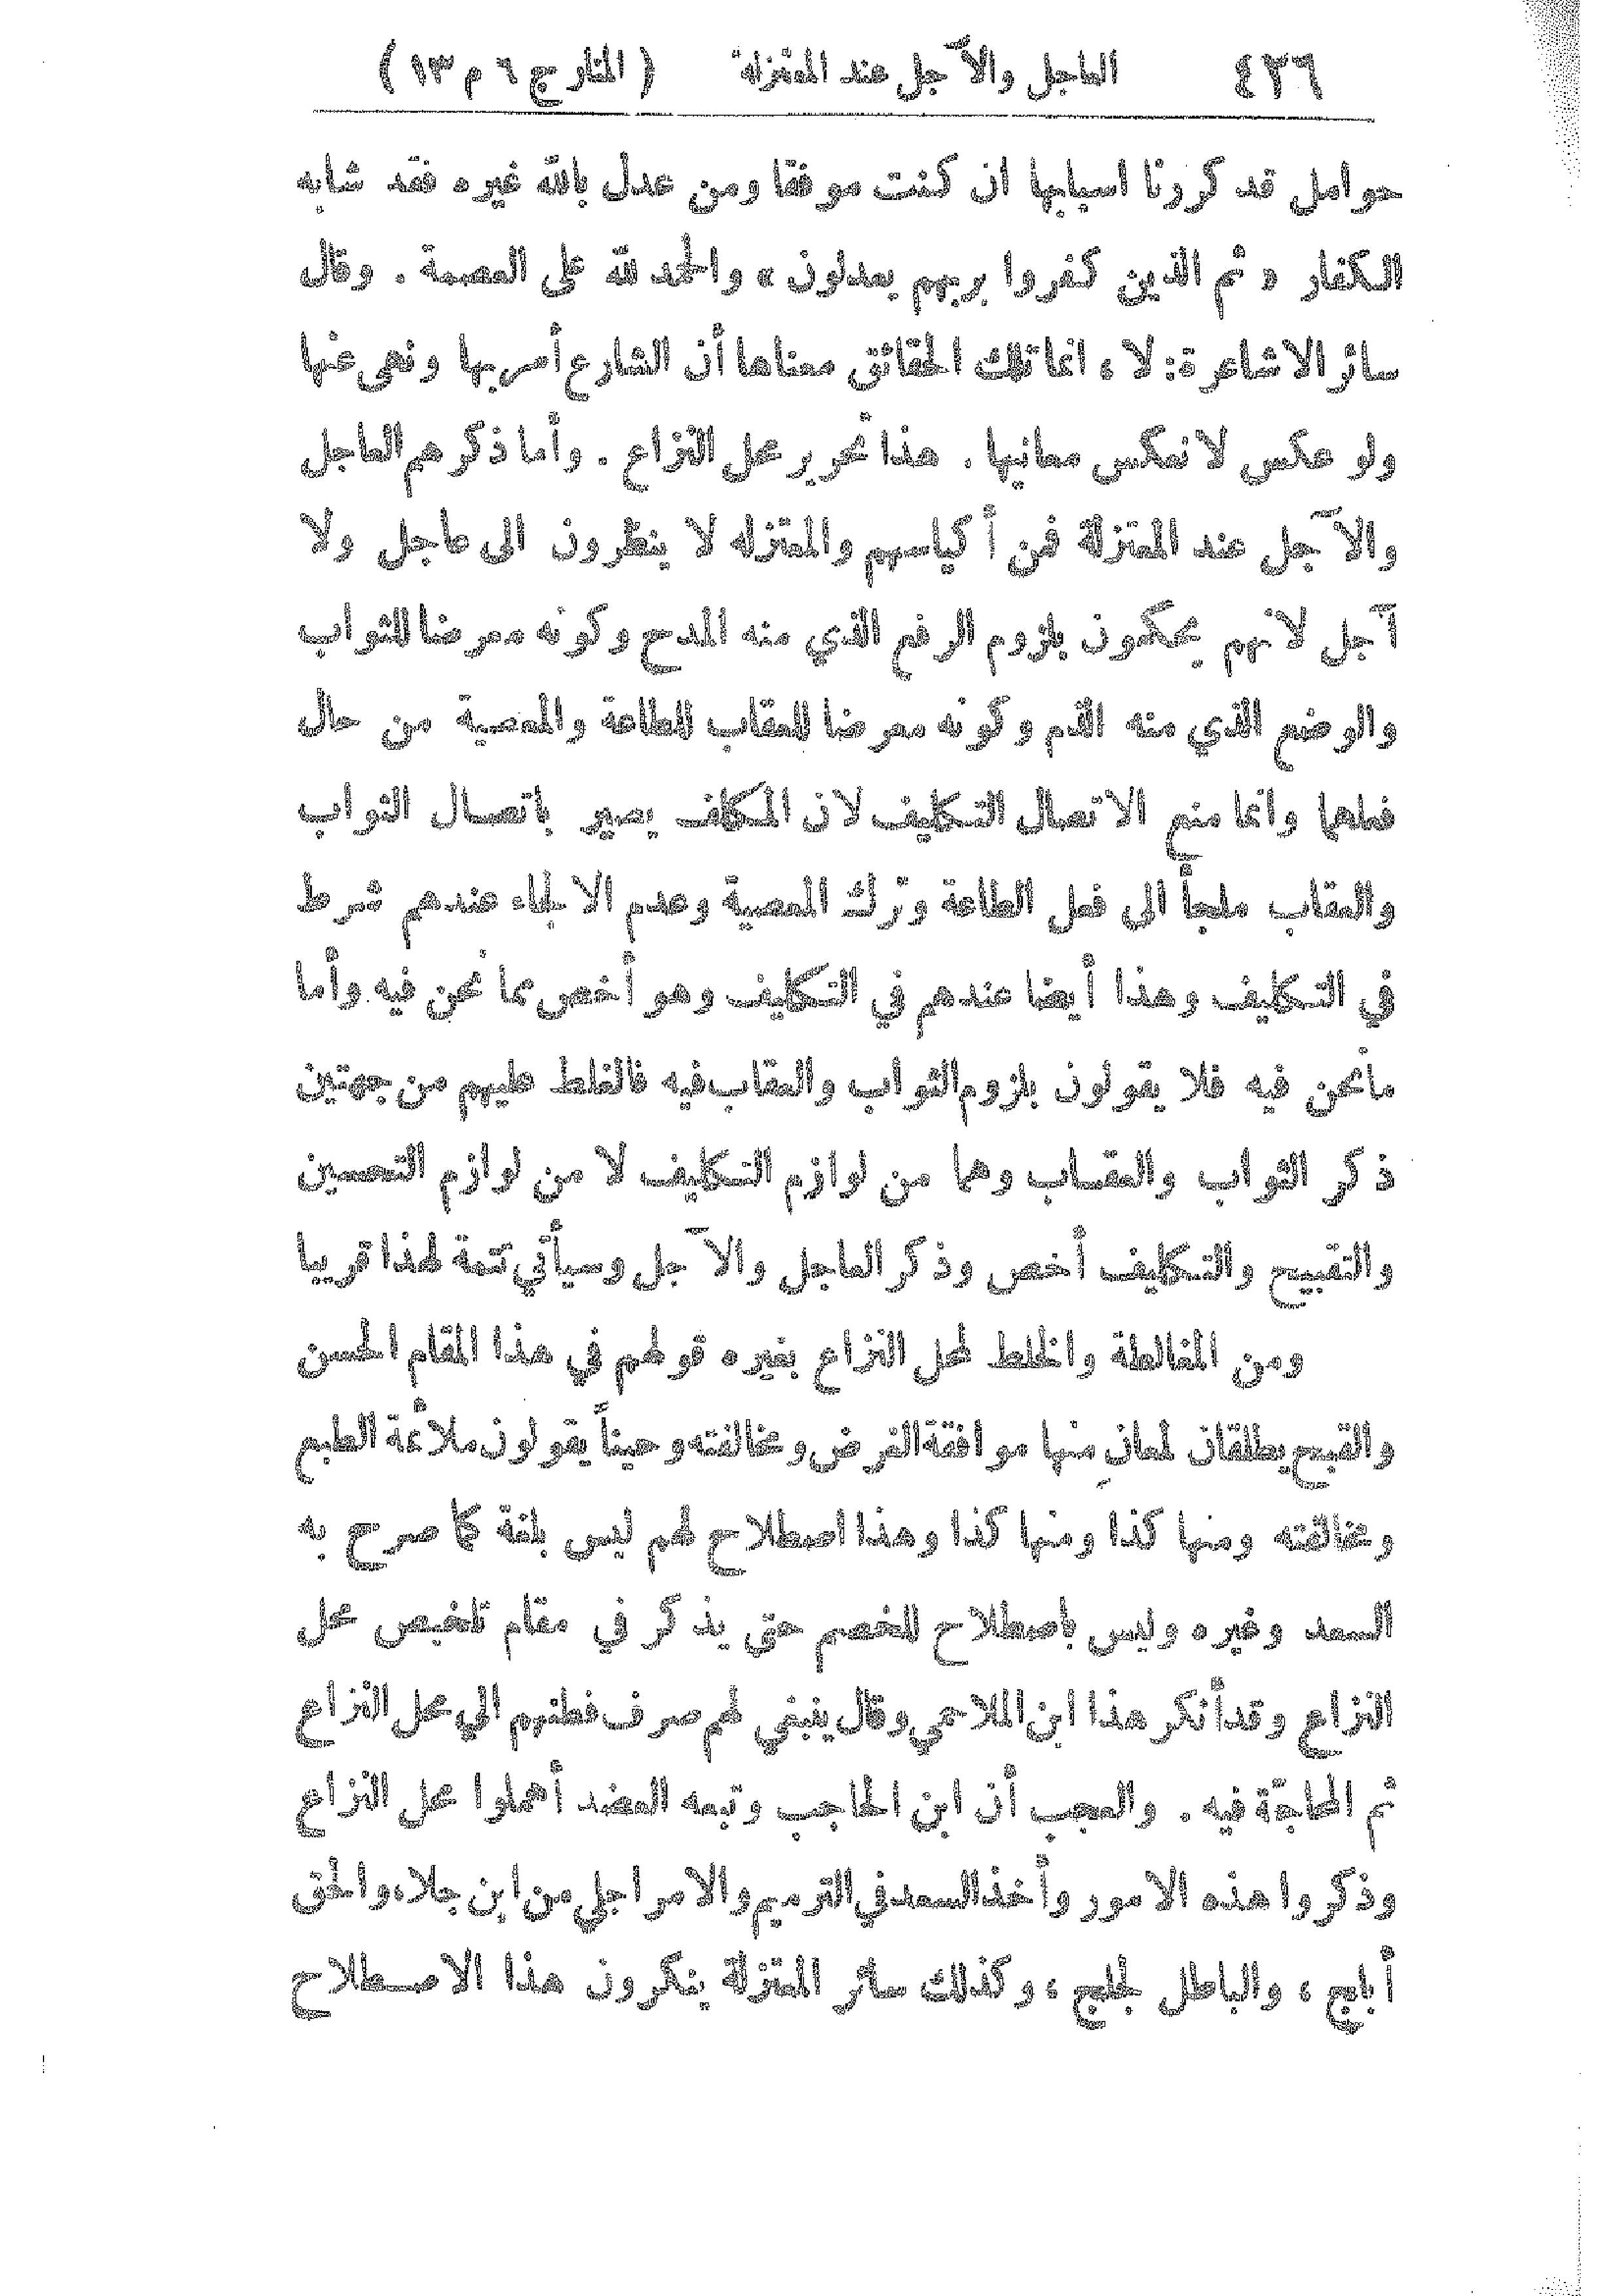 ٤٣٦ العاجل والآجل عند المعتزلة (المنار ج ٦ م ١٣)
حوامل قد كررنا اسبابها ان كنت موفقا ومن عدل بالله غيره فقد شابه
الكفار « ثم الذين كفروا بربهم يعدلون » والحمد لله على العصمة . وقال
سائر الاشاعرة: لا ، انما تلك الحقائق معناها أن الشارع أمر بها ونهى عنها
ولو عكس لانعكس معانيها . هذا تحرير محل النزاع . وأما ذكرهم العاجل
والآجل عند المعتزلة فمن أكياسهم والمعتزله لا ينظرون الى عاجل ولا
آجل لانهم يحكمون بلزوم الرفع الذي منه المدح وكونه معرضا للثواب
والوضع الذي منه الذم وكونه معرضا للعقاب للطاعة والمعصية من حال
فعلهما وانما منع الاتصال التكليف لان المكلف يصير باتصال الثواب
والعقاب ملجأ الى فعل الطاعة وترك المعصية وعدم الالجاء عندهم شرط
في التكليف وهذا أيضا عندهم في التكليف وهو أخص مما نحن فيه وأما
مانحن فيه فلا يقولون بلزوم الثواب والعقاب فيه فالغلط عليهم من جهتين
ذكر الثواب والعقاب وهما من لوازم التكليف لا من لوازم التحسين
والتقبيح والتكليف أخص وذكر العاجل والآجل وسيأتي تتمة لهذا قريبا
ومن المغالطة والخلط لمحل النزاع بغيره قولهم في هذا المقام الحسن
والقبح يطلقان لمعانٍ منها موافقة الغرض ومخالفته وحيناً يقولون ملائمة الطبع
ومخالفته ومنها كذا ومنها كذا وهذا اصطلاح لهم ليس بلغة كما صرح به
السعد وغيره وليس باصطلاح للخصم حتى يذكر في مقام تلخيص محل
النزاع وقد أنكر هذا ابن الملاحمي وقال ينبغي لهم صرف فطنهم الي محل النزاع
ثم المحاجّة فيه . والعجب أن ابن الحاجب وتبعه العضد أهملوا محل النزاع
وذكروا هذه الامور وأخذ السعد في الترميم والامر اجلي من ابن جلاء والحق
أبلج ، والباطل لجلج ، وكذلك سائر المعتزلة ينكرون هذا الاصطلاح